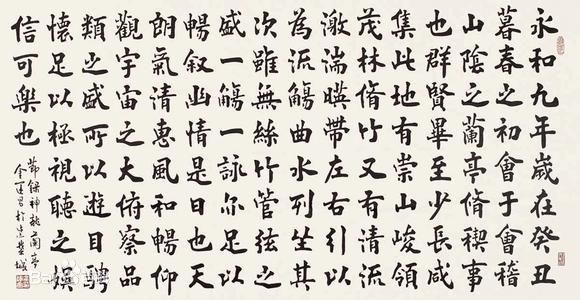 永和九年歲在癸丑
暮春之初會于會稽
山陰之蘭亭脩稧事
也群賢畢至少長咸
集此地有崇山峻領
茂林脩竹又有清流
激湍暎帶左右引以
為流觴曲水列坐其
次雖無絲竹管弦之
盛一觴一詠亦足以
暢叙幽情是日也天
朗氣清惠風和暢仰
觀宇宙之大俯察品
類之盛所以遊目騁
懷足以極視聽之娛
信可樂也
節錄神龍蘭亭